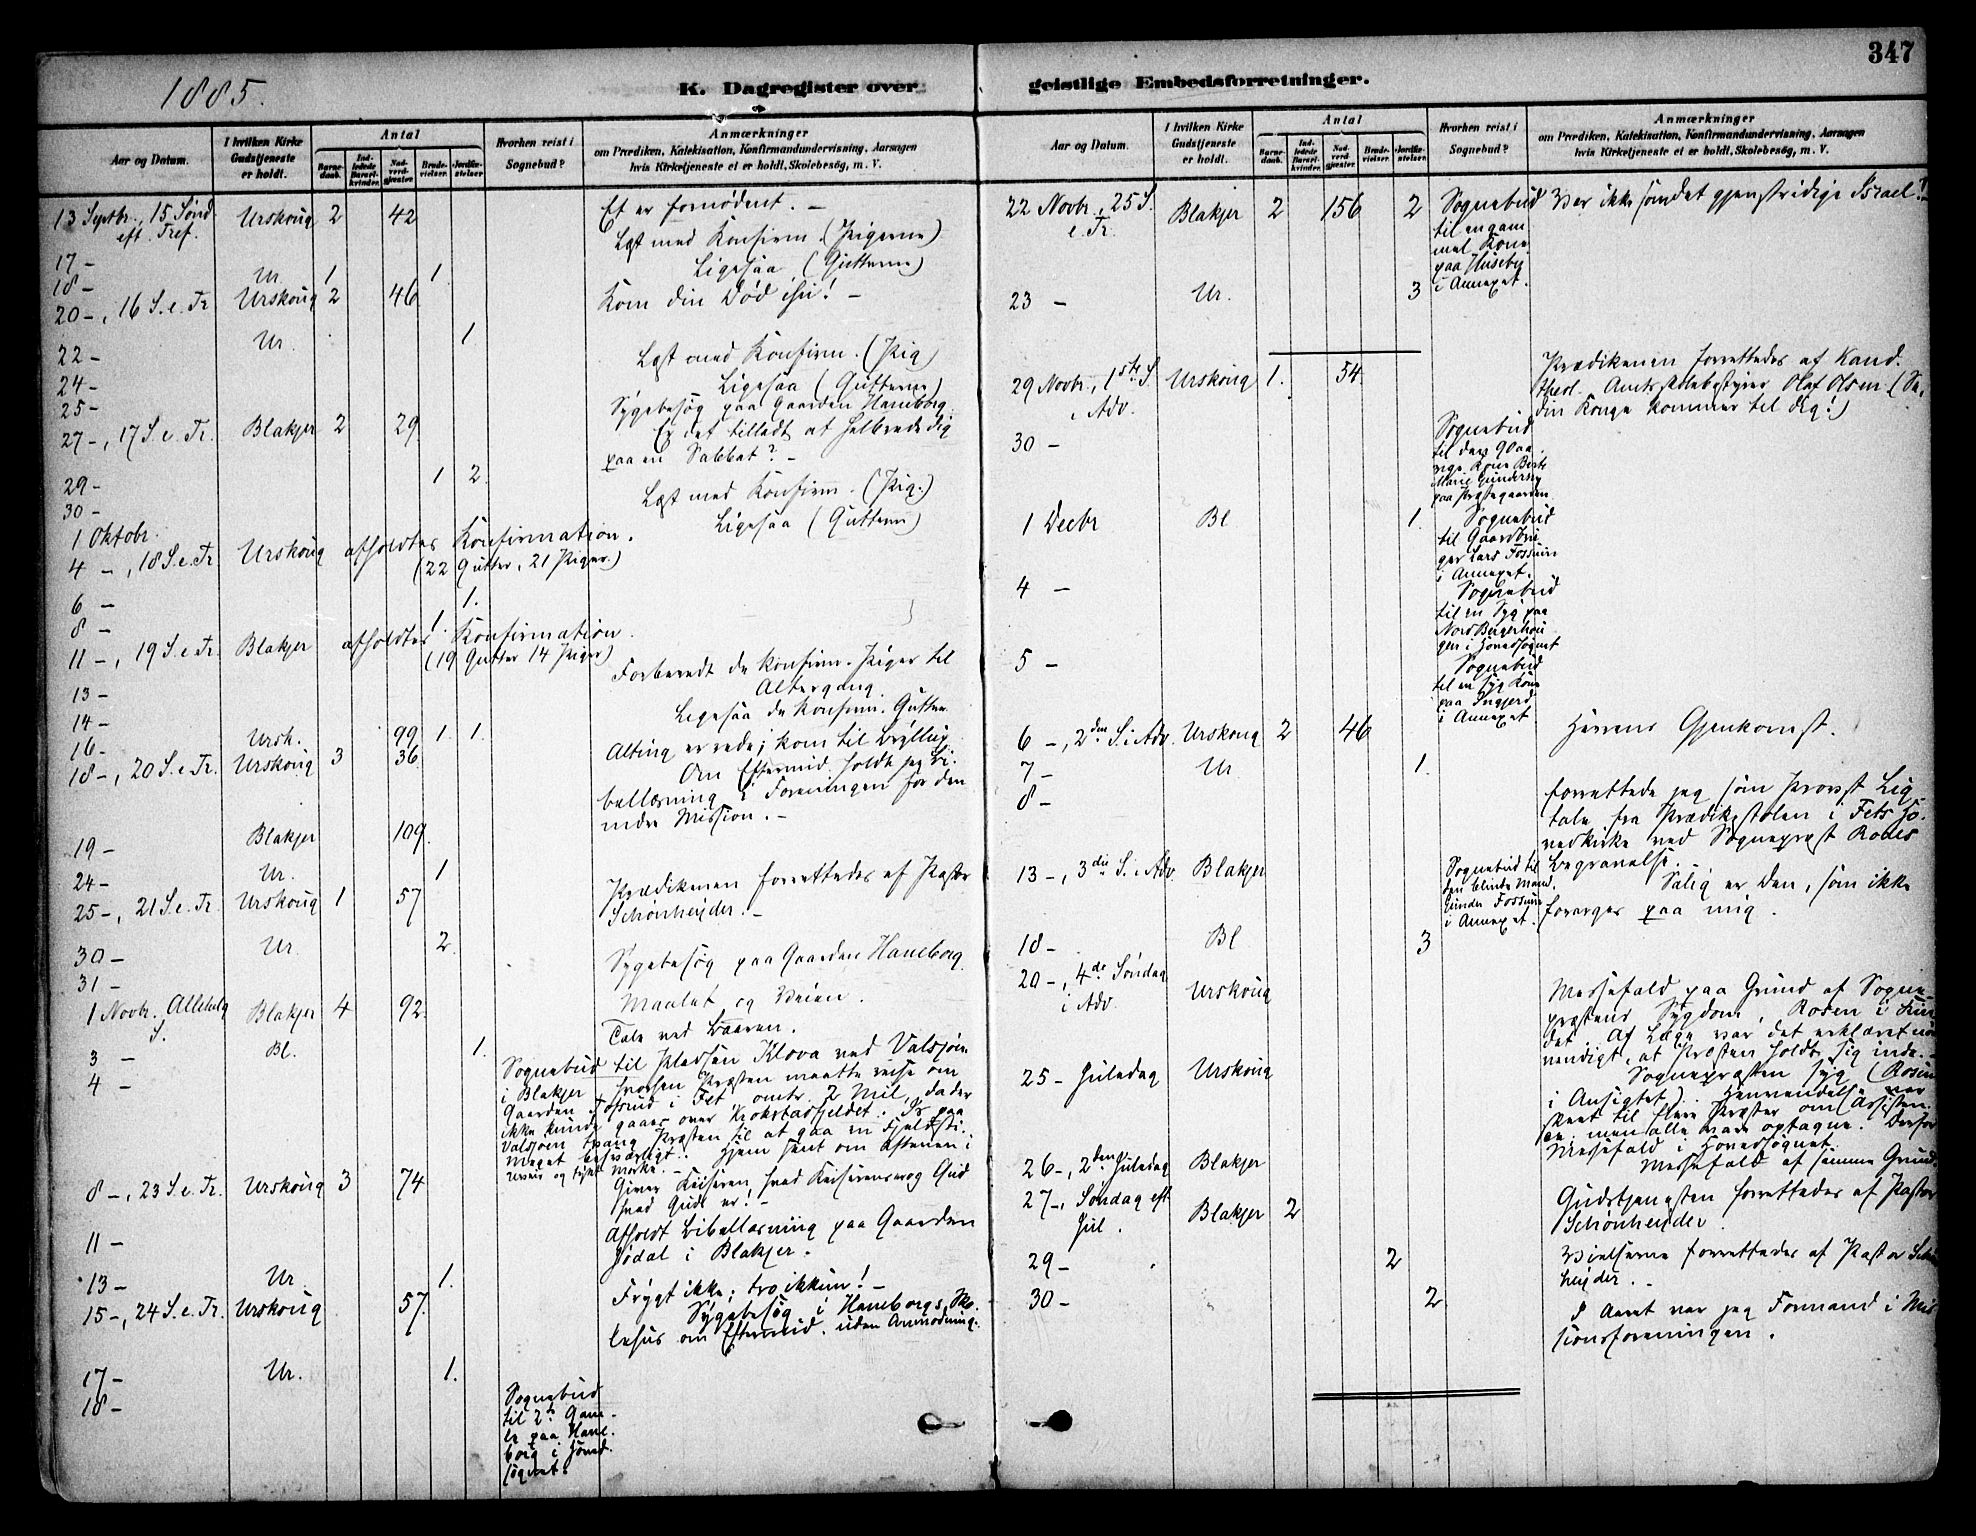 1885.
K. Dagregister over
Aar og Datum.
I hvilken Kirke Gudstjeneste er holdt.
Antal
Barnedaab.
Indledede Barselkvinder.
Nadverdgjester.
Brudevielser.
Jordfæstelser.
Hvorhen reist i Sognebud?
Anmærkninger
om Prædiken, Katekisation, Konfirmandundervisning, Aarsagen
hvis Kirketjeneste ei er holdt, Skolebesög, m. V.
13 Septbr., 15 Sønd. Urskoug 2 42 Et er fornødent. –
eft. Tref.
17 – Læst med Konfirm. (Pigerne)
18 – Ur. 1 1 Ligesaa (Gutterne)
20 –, 16 S. e. Tr. Urskoug 2 46 Kom din Død ihu! –
22 – Ur. 1
24 – Læst med Konfirm. (Pig.)
25 – Ligesaa (Gutterne)
Sygebesøg paa Gaarden Haneborg.
27 –, 17 S. e. Tr. Blakjer 2 29 Er det tilladt at helbrede dig
paa en Sabbat? –
29 – 1 2
30 – Læst med Konfirm. (Pig.)
1 Oktobr. Ligesaa (Gutterne)
4 –, 18 S. e. Tr. Urskoug afholdtes Konfirmation.
(22 Gutter, 21 Piger.)
6 – 1.
8 – 1.
11 –, 19 S. e. Tr. Blakjer afholdtes Konfirmation.
(19 Gutter 14 Piger)
13 – Forberedt de konfirm. Piger til
Altergang.
14 – Ligesaa de konfirm. Gutter
16 – Ursk. 99 1 1.
18 –, 20 S. e. Tr. Urskoug 3 36 Alting er rede; kom til Bryllup
Om Eftermid. holdt jeg Bi-
bellæsning i Foreningen for den
indre Mission. –
19 – Blakjer 109
24 – Ur. 1
25 –, 21 S. e. Tr. Urskoug 1 57 Prædikenen forrettedes af Pastor
Schönheyder. –
30 – Ur. 2
31 – Sygebesøg paa Gaarden Haneborg.
1 Novbr. Allehelg. Blakjer 4 92 Maalet og Veien.
S.
3 – Bl. 1. Tale ved Baaren.
4 – Sognebud til Pladsen Klova ved Valsjøen
i Blakjer hvorhen Præsten maatte reise om
Gaarden Fossud i Fet omtr. 2 Mil, da der
ikke kunde gaaes over Krokstadfjeldet. Is paa
Valsjøen tvang Præsten til at gaa en Fjeldsti.
Meget besværligt. Hjem sent om Aftenen i
og tykt Mørke. –
8 –, 23 S. e. Tr. Urskoug 3 74 Giver Keiseren, hvad Keiserens er og Gud
hvad Guds er! –
11 – Afholdt Bibellæsning paa Gaarden
Jødal i Blakjer.
13 – Ur. 1.
15 –, 24 S. e. Tr. Urskoug 57. Frygt ikke; tro ikkun! –
Sygebesøg i Haneborgs Sko-
lehus om Eftermid. uden Anmodning.
17 – Ur. 1.
18 – Sognebud
til 2de Gam-
le paa Hane-
borg i Hoved-
sognet.
347
geistlige Embedsforretninger.
Aar og Datum.
I hvilken Kirke Gudstjeneste er holdt.
Antal
Barnedaab.
Indledede Barselkvinder.
Nadverdgjester.
Brudevielser.
Jordfæstelser.
Hvorhen reist i Sognebud?
Anmærkninger
om Prædiken, Katekisation, Konfirmandundervisning, Aarsagen
hvis Kirketjeneste ei er holdt, Skolebesög, m. V.
22 Novbr., 25 S. Blakjer 2 156 2 Sognebud Vær ikke som det gjenstridige Israel! –
e. Tr.
til en gam-
mel Kone
paa Huseby
i Annexet.
23 – Ur. 3
29 Novbr., 1ste S. Urskoug 1. 54. Prædikenen forrettedes af Kand.
i Adv.
theol. Amtsskolebestyrer Olaf Olsen (Se,
din Konge kommer til dig!)
30 – Sognebud
til den 90aa-
rige Kone Berte
Marie Gundersen
paa Præstegaarden
1 Decbr Bl 1.
4 – Sognebud
til Gaardbru-
ger Lars Fossum
i Annexet.
5 – Sognebud
til en Syg paa
Nord
i Hovedsognet
Sognebud
til en syg Kone
paa
i Annexet
6 –, 2den S. i Adv. Urskoug 2 46 Herrens Gjenkomst.
7 – Ur 1.
8 – forrettede jeg som Provst Lig-
tale fra Prædikestolen i Fets Ho-
vedkirke ved Sognepræst Rodes
Begravelse.
13 –, 3die S. i Adv. Blakjer Sognebud til
den blinde Mand
Gunder Fossum
i Annexet. Salig er den, som ikke
forarges paa mig.
18 – Bl 3
20 –, 4de Søndag Urskoug Messefald paa Grund af Sogne-
i Adv.
præstens Sygdom, Rosen i
Af Læge var det erklæret nød-
vendigt, at Præsten holdt sig inde. –
25 – Juledag Urskoug Sognepræsten syg (Rosen
i Ansigtet). Henvendelse var
skeet til flere Præster om Assisten-
ce, men alle vare optagne. Derfor
Messefald i Hovedsognet.
26 –, 2den Juledag Blakjer Messefald af samme Grund.
27 –, Søndag eft. Blakjer 2 Gudstjenesten forrettedes af Pastor
Jul.
Schönheyder.
29 – 2 Vielserne forrettedes af Pastor Schön-
heyder. –
30 – 2 I Aaret var jeg Formand i Mis-
sionsforeningen.